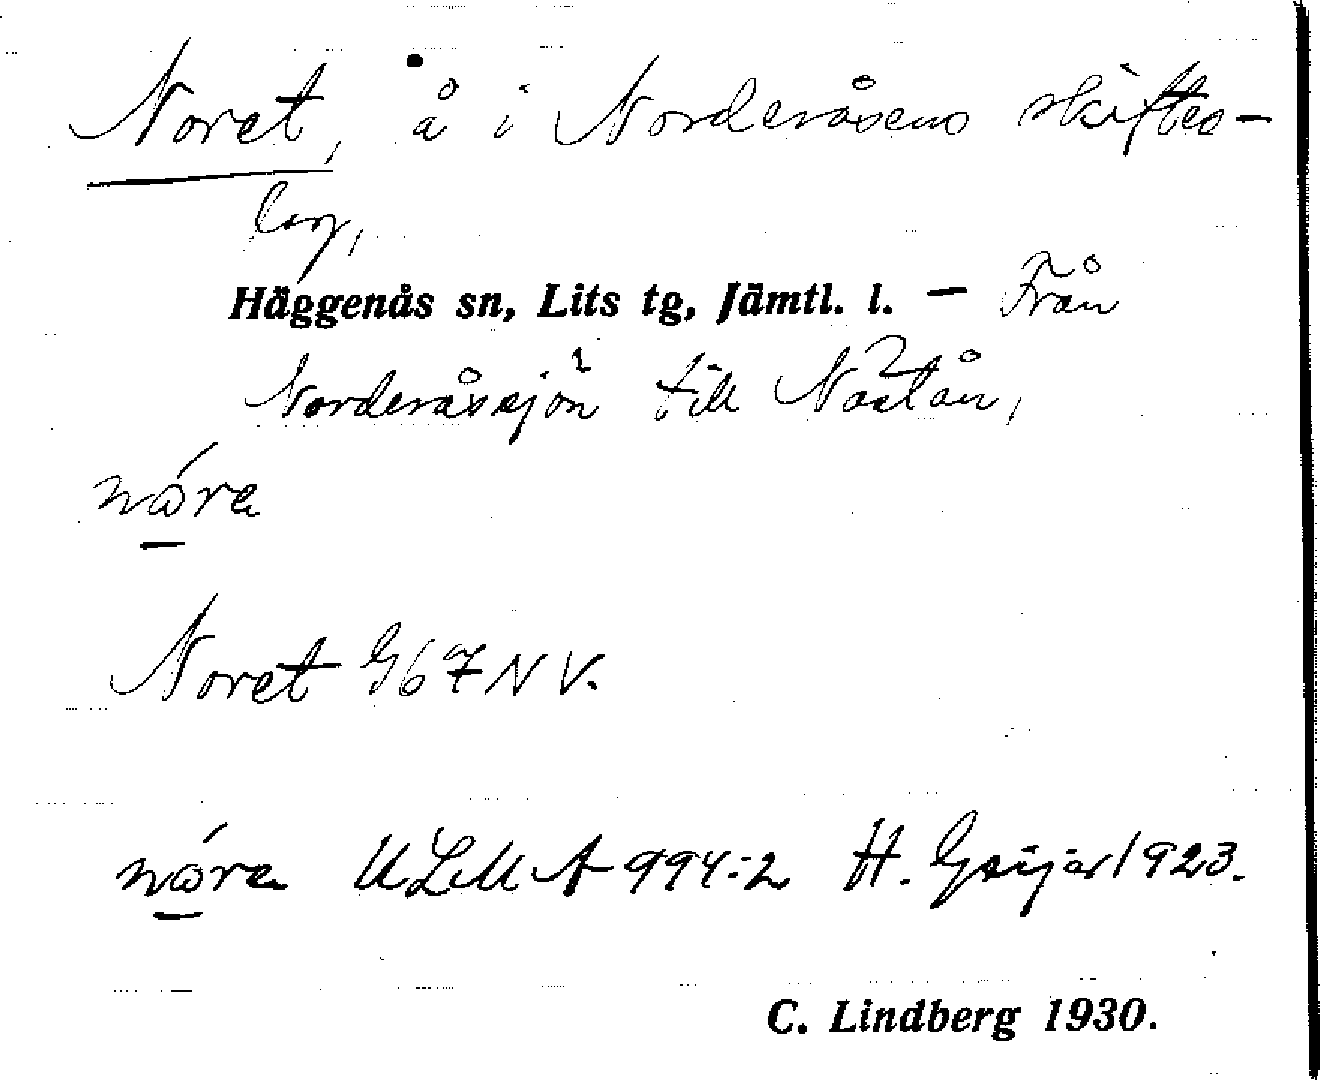 Noret, å i Norderåsens skiftes-
lag,
Häggenås sn, Lits tg, Jämtl. l. — Från
Norderåssjön till Nästån,
nǿra
Noret G67NV.
nǿra ULMA 994:2 H. Geijer 1923.
C. Lindberg 1930.